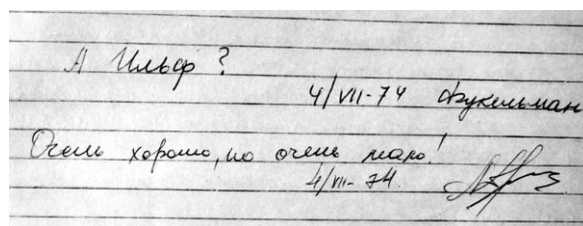 А Ильф?
4/VII-74 Фукельман
Очень хорошо, но очень мало!
4/VII-74